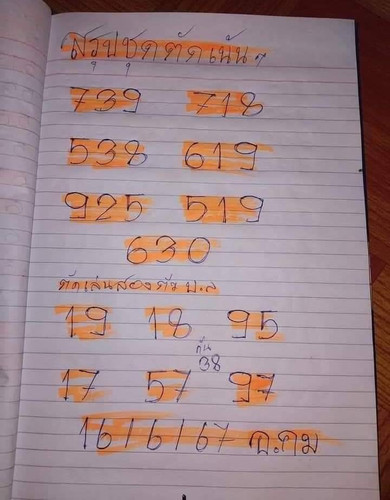 สรุปชุดตัดเน้นๆ
739 718
538 619
925 519
630
ตัดเล่นสองตัว บ.ล
19 18 95
กัน
38
17 57 97
16/6/67